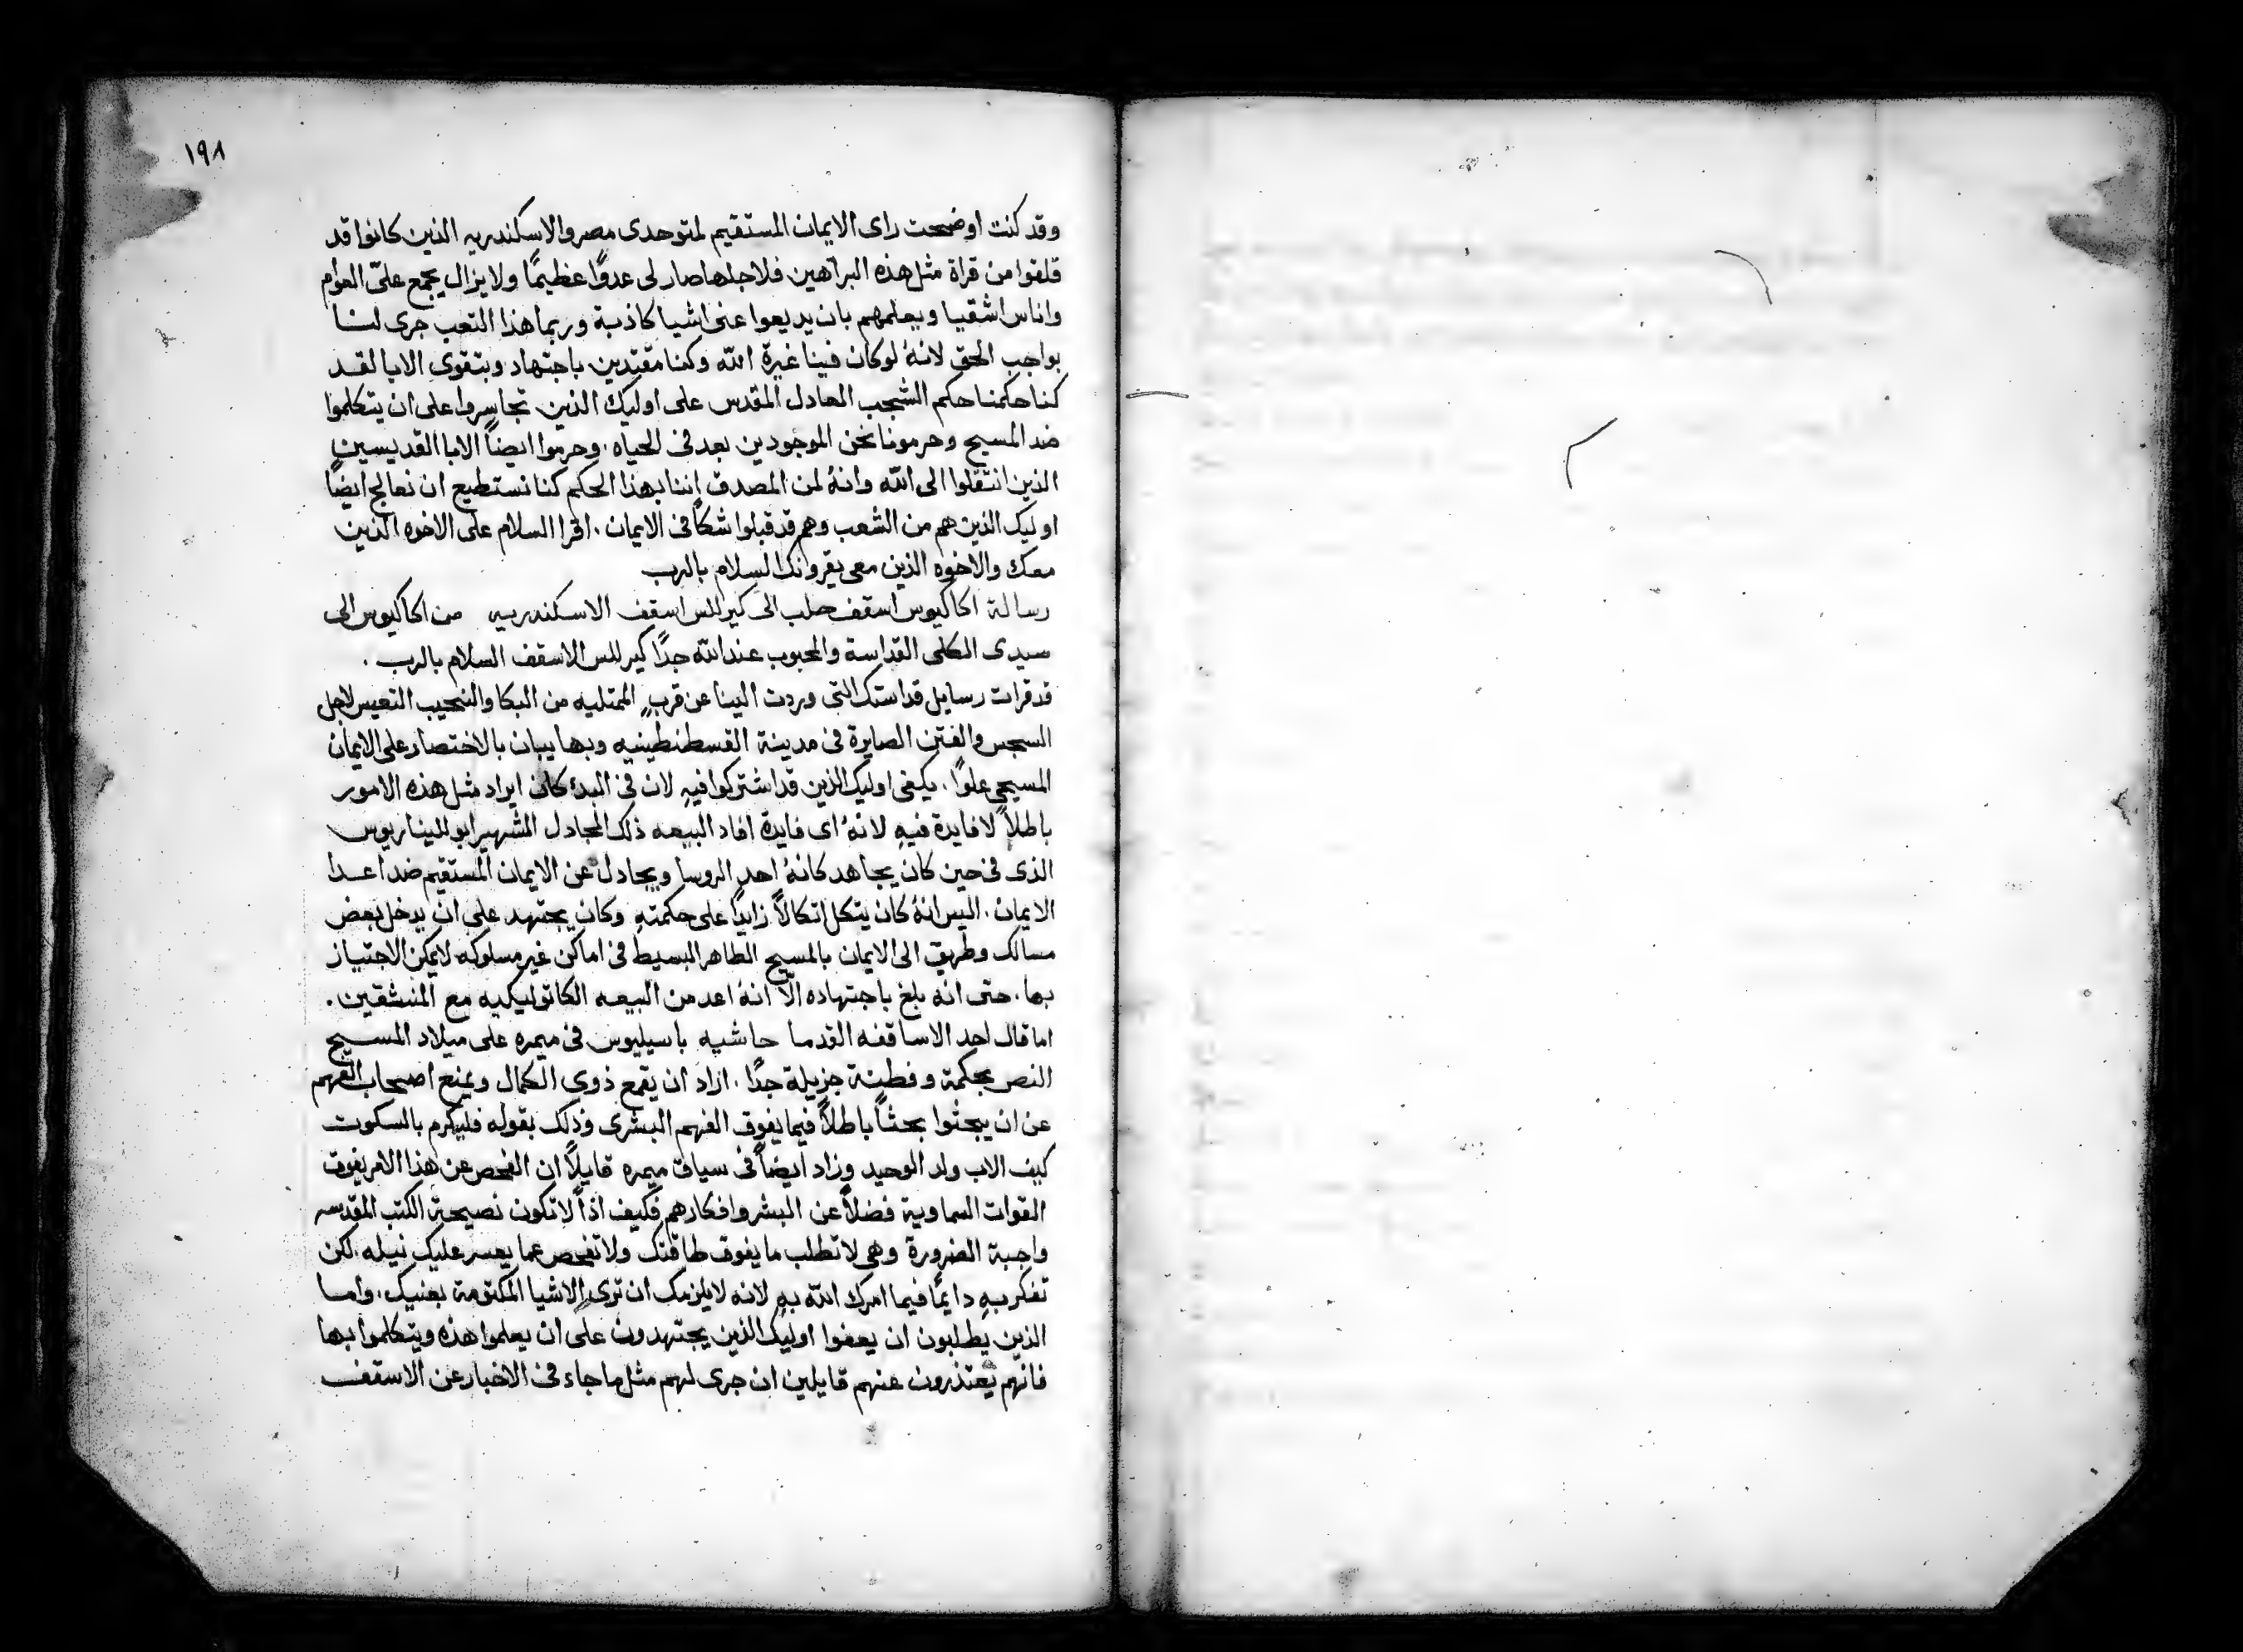 ١٩٨
وقد كنت اوضحت راى الايمان المستقيم لمتوحدى مصر والاسكندريه الذين كانوا قد
قلقوا من قراة مثل هذه البراهين فلاجلها صار لى عدوًا عظيمًا ولا يزال يجمع علىّ العوام
واناس اشقيا ويعلمهم بان يديعوا عنى اشيا كاذبة وربما هذا التعب جرى لنا
بواجب الحق لانهُ لو كان فينا غيرة الله وكنا مقتدين باجتهاد وبتقوى الابا لقد
كنا حكمنا حكم الشجب العادل المقدس على اوليك الذين تجاسروا على ان يتكلموا
ضد المسيح وحرمونا نحن الموجودين بعد فى الحياه . وحرموا ايضاً الابا القديسين
الذين انتقلوا الى الله وانهُ لمن المصدق اننا بهذا الحكم كنا نستطيع ان نعالج ايضاً
اوليك الذين هم من الشعب وهم قد قبلوا شكاً فى الايمان . اقرا السلام على الاخوه الذين
معك والاخوه الذين معى يقروانك السلام بالرب
رسالة اكاكيوس اسقف حلب الى كيرللس اسقف الاسكندريه من اكاكيوس الى
سيدى الكلى القداسة والمحبوب عند الله جدًا كيرللس الاسقف السلام بالرب .
قد قرات رسايل قداستك التى وردت الينا عن قربٍ الممتليه من البكا والنحيب التعيس لاجل
السجس والفتن الصايرة فى مدينة القسطنطينيه وبها يبان بالاختصار على الايمان
المسيحى علوًا . يكفى اوليك الذين قد اشتركوا فيهِ لان فى البدء كان ايراد مثل هذه الامور
باطلاً لا فايدة فيهِ لانهُ اى فايدة افاد البيعه ذلك المجادل الشهير ابوللينا ريوس
الذى فى حين كان يجاهد كانهُ احد الروسا ويجادل عن الايمان المستقيم ضد اعدا
الايمان . اليس انهُ كان يتكل اتكالاً زايدًا على حكمتهِ وكان يجتهد على ان يدخل بعض
مسالك وطريق الى الايمان بالمسيح الطاهر البسيط فى اماكن غير مسلوكه لا يمكن الاجتياز
بها . حتى انه بلغ باجتهاده الّا انهُ اعد من البيعه الكاتوليكيه مع المنشقين .
اما قال احد الاساقفه القدما حاشيه باسيليوس فى ميمره على ميلاد المسيح
النص بحكمة وفطنة جزيلة جدًا . اراد ان يقمع ذوى الكمال ويمنع اصحاب الفهم
عن ان يبحثوا بحثاً باطلاً فيما يفوق الفهم البشرى وذلك بقوله فليكرم بالسكوت
كيف الاب ولد الوحيد وزاد ايضاً فى سياق ميمره قايلاً ان الفحص عن هذا الامر يفوق
القوات السماوية فضلاً عن البشر وافكارهم فكيف اذاً لا تكون نصيحة الكتب المقدسه
واجبة الضرورة وهى لا تطلب ما يفوق طاقتك ولا تفحص عما يعسر عليك نيله . لكن
تفكر بهِ دايمًا فيما امرك الله بهِ لانه لا يلزمك ان ترى الاشيا المكتومة بعنيك . واما
الذين يطلبون ان يعفوا اوليك الذين يجتهدون على ان يعلموا هذه ويتكلموا بها
فانهم يعتذرون عنهم قايلين ان جرى لهم مثل ما جاء فى الاخبار عن الاسقف